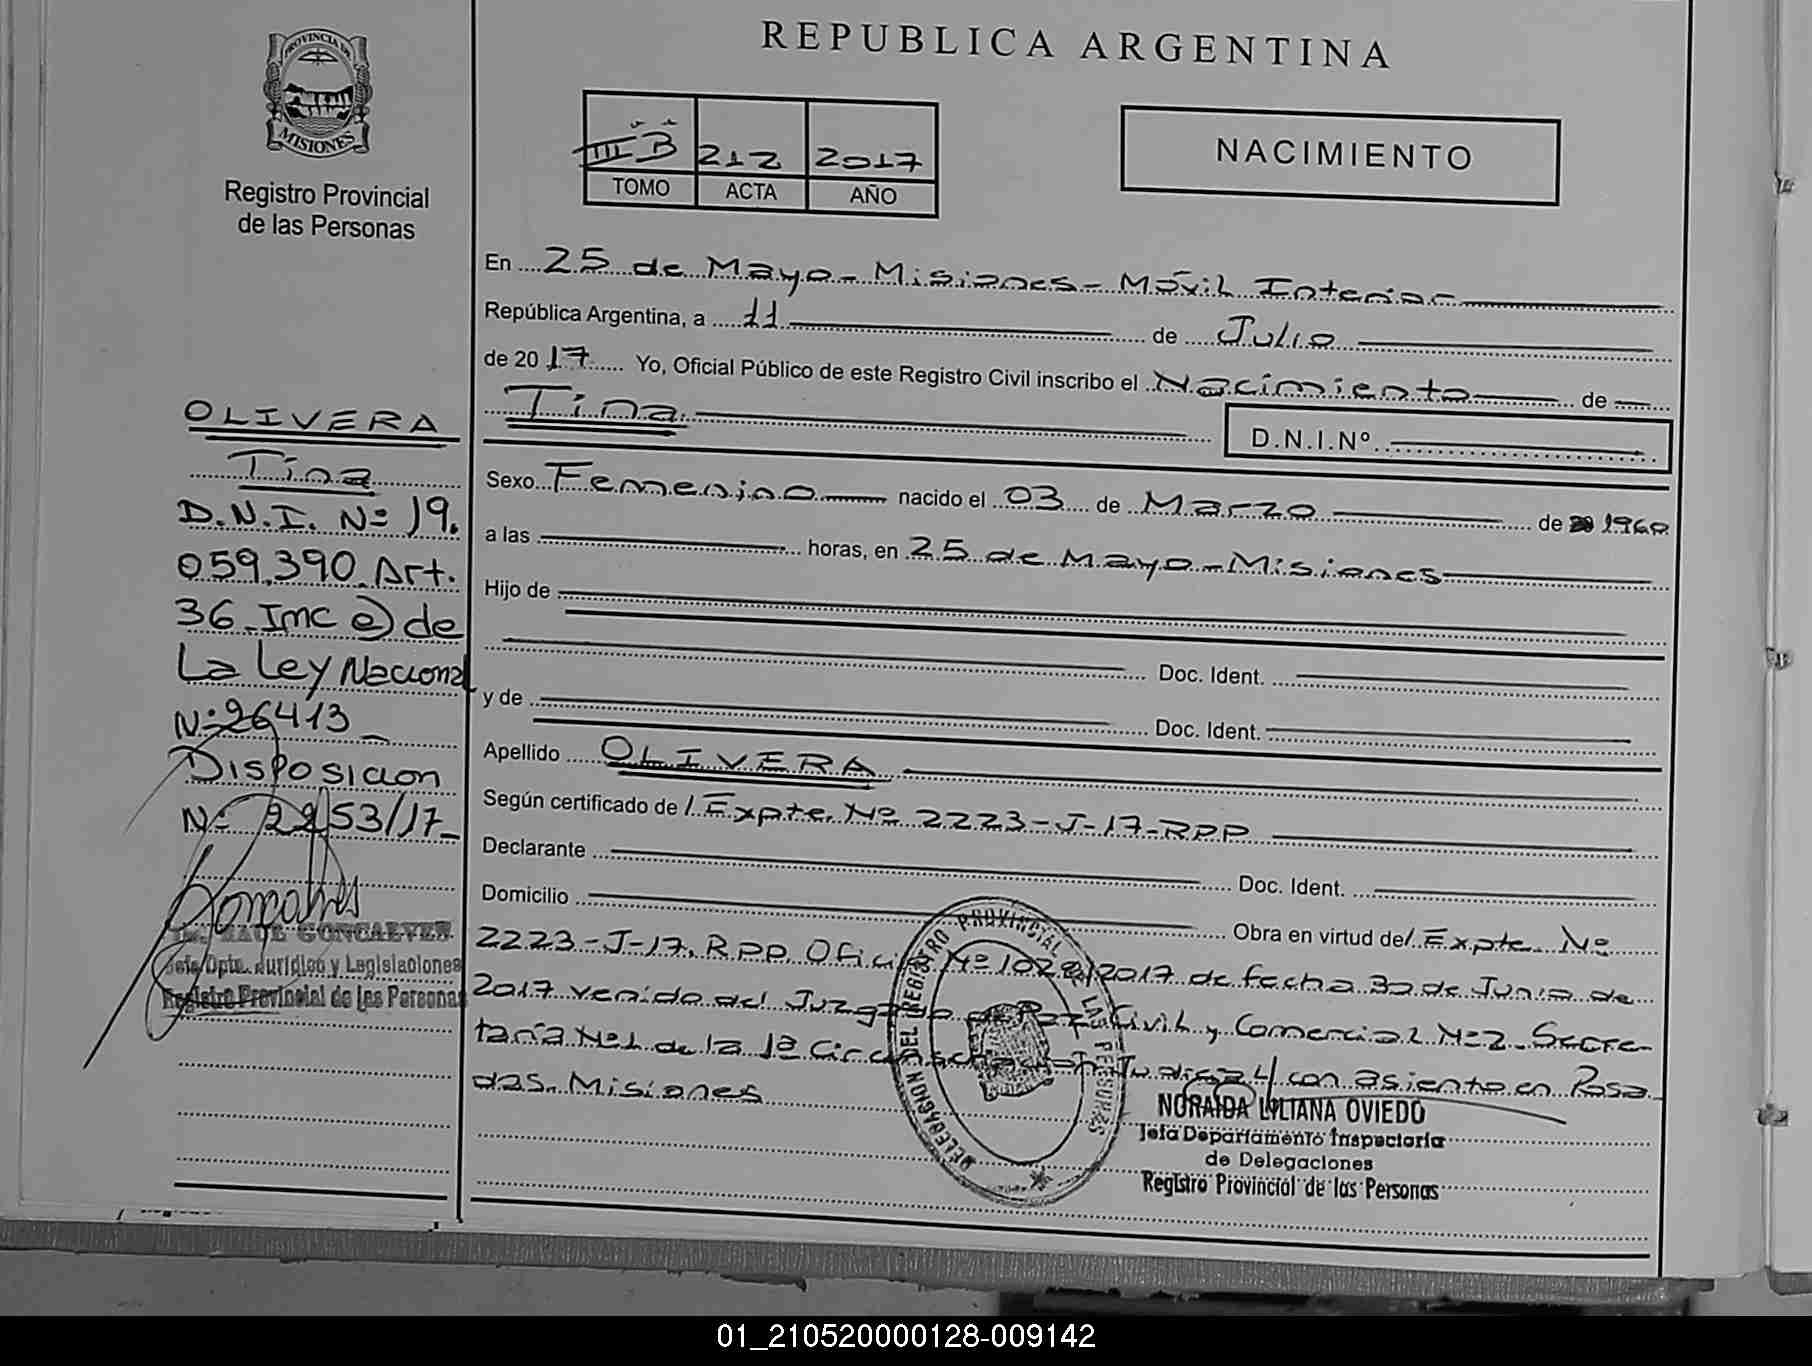 REPUBLICA ARGENTINA
PROVINCIA DE
MISIONES
Registro Provincial
de las Personas
III "B" 212 2017
TOMO ACTA AÑO
NACIMIENTO
En 25 de Mayo - Misiones - Móvil Interior
República Argentina, a 11 de Julio
de 2017 Yo, Oficial Público de este Registro Civil inscribo el Nacimiento de
Tina
D.N.I.Nº
Sexo Femenino nacido el 03 de Marzo de 1960
a las horas, en 25 de Mayo - Misiones
Hijo de
Doc. Ident.
y de Doc. Ident.
Apellido OLIVERA
Según certificado de/ Expte. Nº 2223-J-17-RPP
Declarante Doc. Ident.
Domicilio Obra en virtud de/ Expte. Nº
2223-J-17. RPP Oficio Nº 1022/2017 de fecha 30 de Junio de
2017 venido del Juzgado de Paz Civil y Comercial Nº 2 Secre-
taría Nº 1 de la 1ª Circunscripción Judicial con asiento en Posa
das. Misiones
DELEGACION DEL REGISTRO PROVINCIAL DE LAS PERSONAS
NORAIDA LILIANA OVIEDO
Jefa Departamento Inspectoría
de Delegaciones
Registro Provincial de las Personas
OLIVERA
Tina
D.N.I. Nº 19.
059.390 Art.
36 Inc e) de
La Ley Nacional
Nº 26413
Disposicion
Nº 2253/17
RAUL GONCALVES
Jefe Dpto. Jurídico y Legislaciones
Registro Provincial de las Personas
01_210520000128-009142